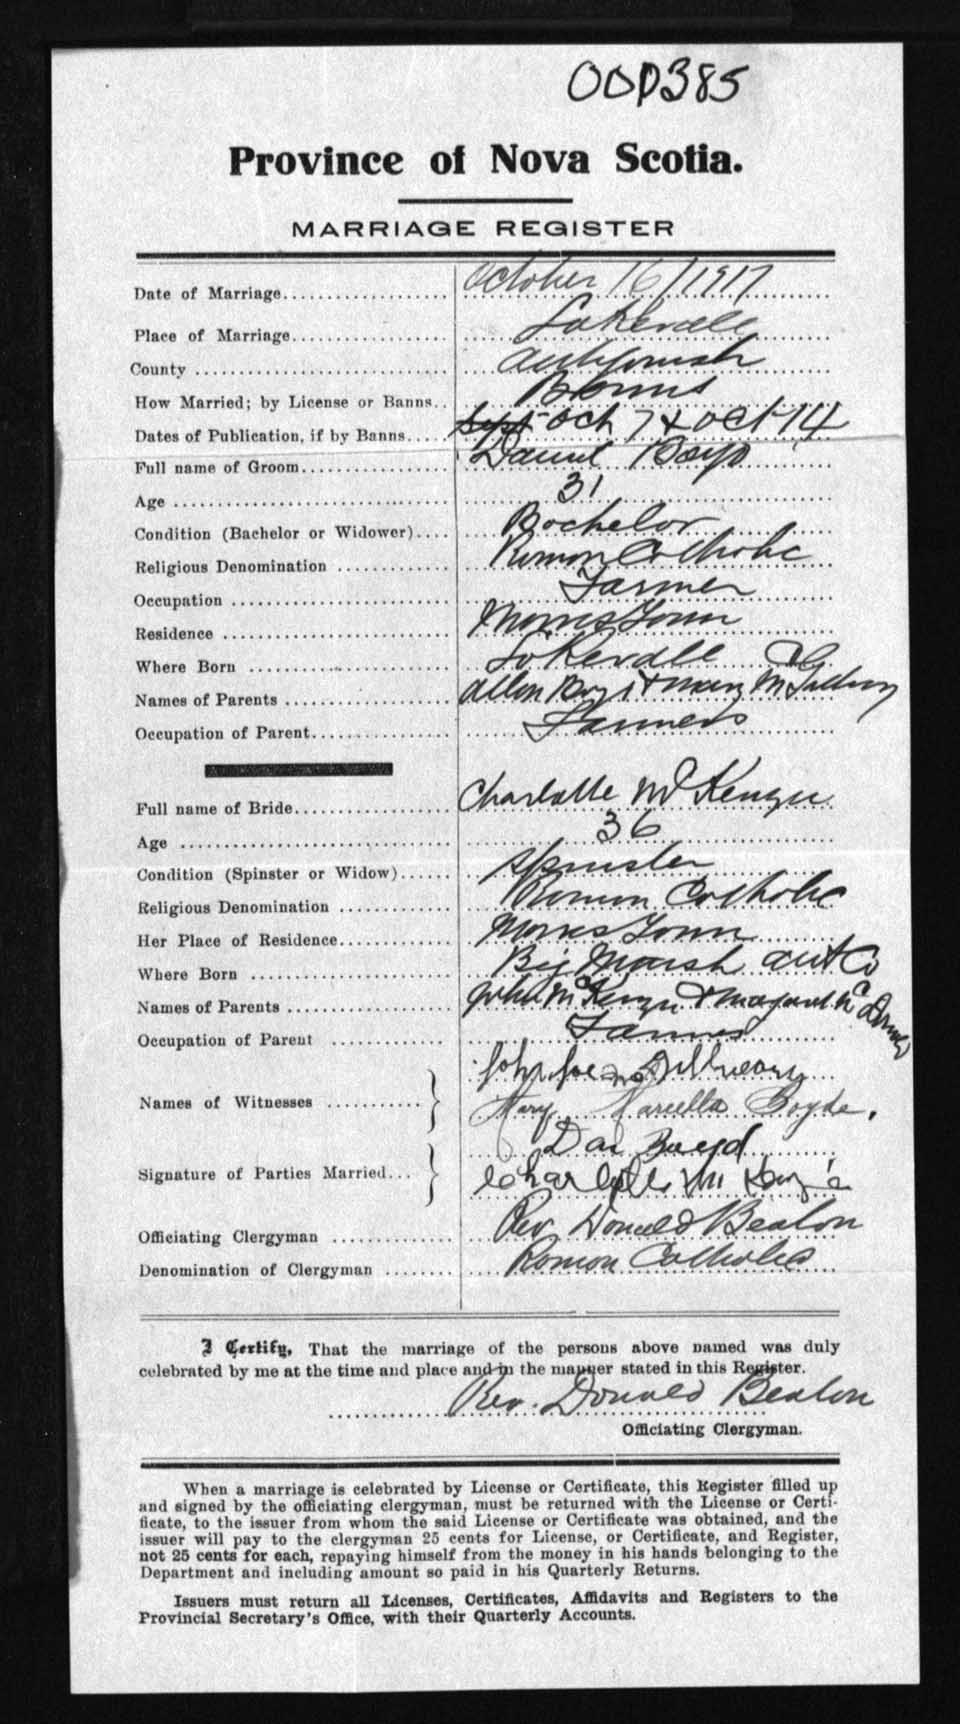 OOP385
Province of Nova Scotia.
MARRIAGE REGISTER
Date of Marriage October 16/1917
Place of Marriage Lakevale
County Antigonish
How Married; by License or Banns Banns
Dates of Publication, if by Banns Sept Oct 7 & Oct 14
Full name of Groom Daniel Boyd
Age 31
Condition (Bachelor or Widower) Bachelor
Religious Denomination Roman Catholic
Occupation Farmer
Residence Morristown
Where Born Lakevale
Names of Parents Allan Boyd & Mary McGillvry
Occupation of Parent Farmers
Full name of Bride Charlotte McKenzie
Age 36
Condition (Spinster or Widow) Spinster
Religious Denomination Roman Catholic
Her Place of Residence Morristown
Where Born Big Marsh Ant Co
Names of Parents John McKenzie & Margaret
Occupation of Parent Farmer
Names of Witnesses John Joe McGillvrary
Mary Marcella Boyde.
Signature of Parties Married Dan Boyd
Charlotte McKenzie
Officiating Clergyman Rev Donald Beaton
Denomination of Clergyman Roman Catholic
I Certify, That the marriage of the persons above named was duly
celebrated by me at the time and place and in the manner stated in this Register.
Rev. Donald Beaton
Officiating Clergyman.
When a marriage is celebrated by License or Certificate, this Register filled up
and signed by the officiating clergyman, must be returned with the License or Certi-
ficate, to the issuer from whom the said License or Certificate was obtained, and the
issuer will pay to the clergyman 25 cents for License, or Certificate, and Register,
not 25 cents for each, repaying himself from the money in his hands belonging to the
Department and including amount so paid in his Quarterly Returns.
Issuers must return all Licenses, Certificates, Affidavits and Registers to the
Provincial Secretary's Office, with their Quarterly Accounts.